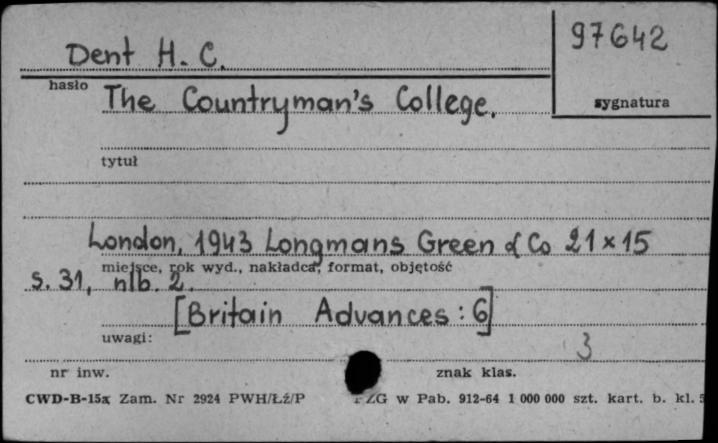 Dent H. C.
97642
hasło
sygnatura
The Countryman's College.
tytuł
London, 1943 Longmans Green & Co 21×15
miejsce, rok wyd., nakładca, format, objętość
s. 31, nlb. 2.
[Britain Advances: 6]
uwagi:
3
nr inw.
znak klas.
CWD-B-15a Zam. Nr 2924 PWH/Łź/P ZG w Pab. 912-64 1 000 000 szt. kart. b. kl. 5